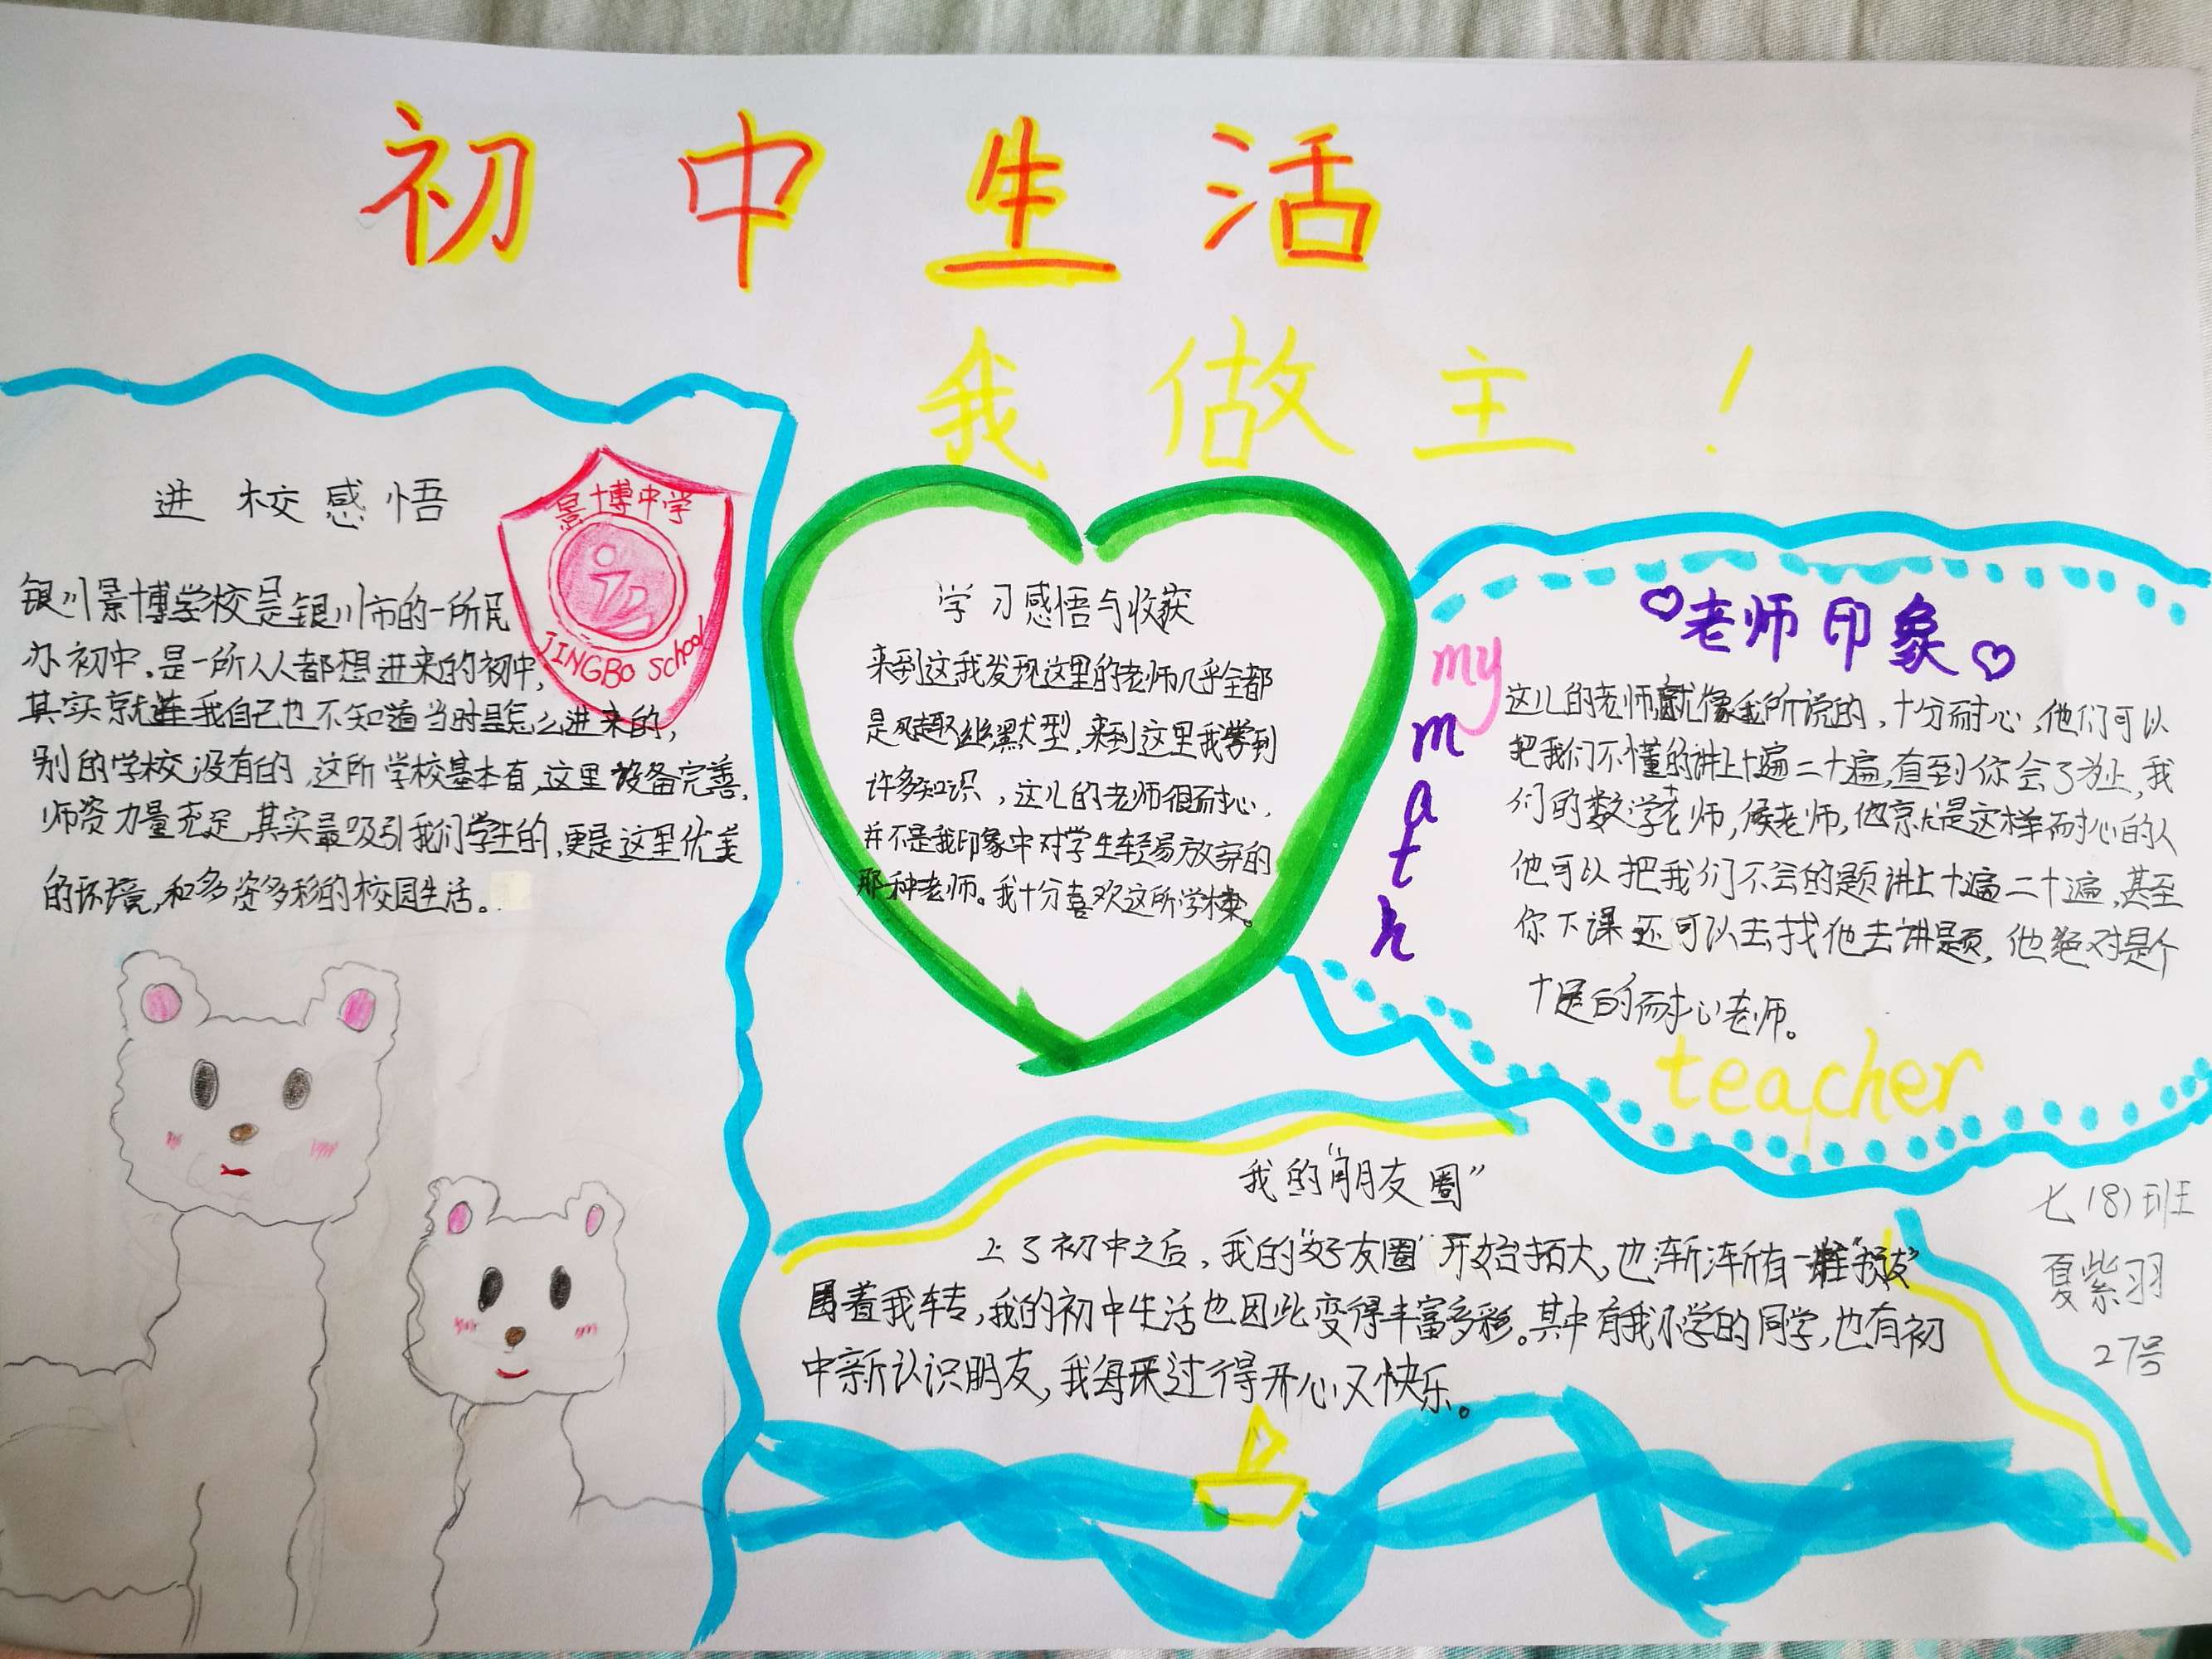 初中生活
我做主！
进校感悟
景博中学
JINGBO School
银川景博学校是银川市的一所民
办初中,是一所人人都想进来的初中,
其实就连我自己也不知道当时是怎么进来的,
别的学校没有的,这所学校基本有,这里设备完善,
师资力量充足,其实最吸引我们学生的,更是这里优美
的环境,和多姿多彩的校园生活。
学习感悟与收获
来到这我发现这里的老师几乎全都
是风趣幽默型,来到这里我学到
许多知识,这儿的老师很耐心,
并不是我印象中对学生轻易放弃的
那种老师。我十分喜欢这所学校。
my
math
老师印象
这儿的老师就像我所说的,十分耐心,他们可以
把我们不懂的讲上十遍二十遍,直到你会了为止,我
们的数学老师,侯老师,他就是这样耐心的人
他可以把我们不会的题讲上十遍二十遍,甚至
你下课还可以去找他去讲题,他绝对是个
十足的耐心老师。
teacher
我的“朋友圈”
上了初中之后,我的“好友圈”开始拓大,也渐渐有一堆“好友”
围着我转,我的初中生活也因此变得丰富多彩。其中有我小学的同学,也有初
中新认识朋友,我每天过得开心又快乐。
七(8)班
夏紫羽
27号